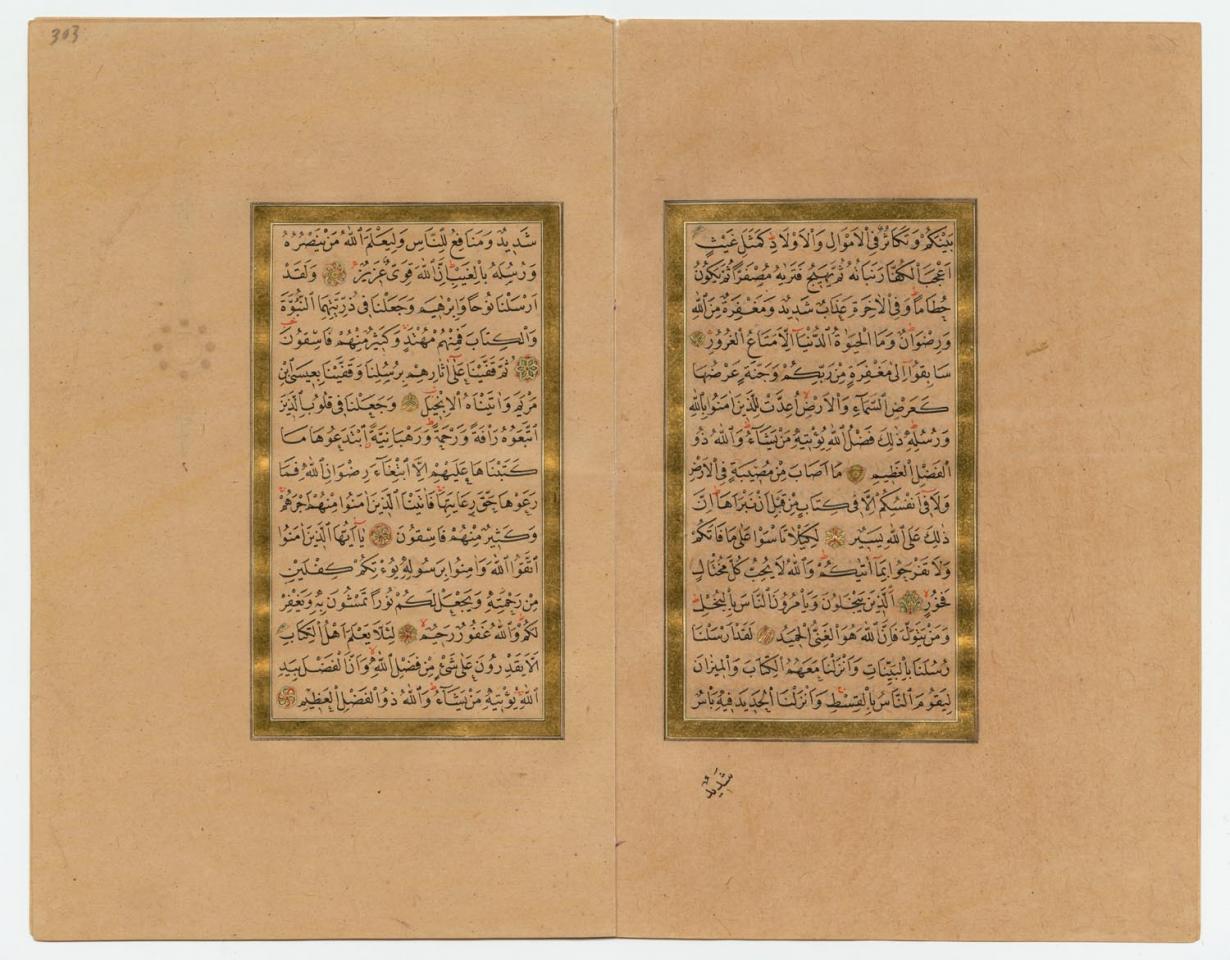 بَيْنَكُمْ وَتَكَاثُرٌ فِي الْاَمْوَالِ وَالْاَوْلَادِ كَمَثَلِ غَيْثٍ
اَعْجَبَ الْكُفَّارَ نَبَاتُهُ ثُمَّ يَهِيجُ فَتَرٰيهُ مُصْفَرًّا ثُمَّ يَكُونُ
حُطَامًا وَفِي الْاٰخِرَةِ عَذَابٌ شَدِيدٌ وَمَغْفِرَةٌ مِنَ اللّٰهِ
وَرِضْوَانٌ وَمَا الْحَيٰوةُ الدُّنْيَا اِلَّا مَتَاعُ الْغُرُورِ
سَابِقُوا اِلٰى مَغْفِرَةٍ مِنْ رَبِّكُمْ وَجَنَّةٍ عَرْضُهَا
كَعَرْضِ السَّمَاءِ وَالْاَرْضِ اُعِدَّتْ لِلَّذِينَ اٰمَنُوا بِاللّٰهِ
وَرُسُلِهِ ذٰلِكَ فَضْلُ اللّٰهِ يُؤْتِيهِ مَنْ يَشَاءُ وَاللّٰهُ ذُو
الْفَضْلِ الْعَظِيمِ مَا اَصَابَ مِنْ مُصِيبَةٍ فِي الْاَرْضِ
وَلَا فِي اَنْفُسِكُمْ اِلَّا فِي كِتَابٍ مِنْ قَبْلِ اَنْ نَبْرَاَهَا اِنَّ
ذٰلِكَ عَلَى اللّٰهِ يَسِيرٌ لِكَيْلَا تَاْسَوْا عَلٰى مَا فَاتَكُمْ
وَلَا تَفْرَحُوا بِمَا اٰتٰيكُمْ وَاللّٰهُ لَا يُحِبُّ كُلَّ مُخْتَالٍ
فَخُورٍ اَلَّذِينَ يَبْخَلُونَ وَيَاْمُرُونَ النَّاسَ بِالْبُخْلِ
وَمَنْ يَتَوَلَّ فَاِنَّ اللّٰهَ هُوَ الْغَنِيُّ الْحَمِيدُ لَقَدْ اَرْسَلْنَا
رُسُلَنَا بِالْبَيِّنَاتِ وَاَنْزَلْنَا مَعَهُمُ الْكِتَابَ وَالْمِيزَانَ
لِيَقُومَ النَّاسُ بِالْقِسْطِ وَاَنْزَلْنَا الْحَدِيدَ فِيهِ بَاْسٌ
شَدِيدٌ
303
شَدِيدٌ وَمَنَافِعُ لِلنَّاسِ وَلِيَعْلَمَ اللّٰهُ مَنْ يَنْصُرُهُ
وَرُسُلَهُ بِالْغَيْبِ اِنَّ اللّٰهَ قَوِيٌّ عَزِيزٌ وَلَقَدْ
اَرْسَلْنَا نُوحًا وَاِبْرٰهِيمَ وَجَعَلْنَا فِي ذُرِّيَّتِهِمَا النُّبُوَّةَ
وَالْكِتَابَ فَمِنْهُمْ مُهْتَدٍ وَكَثِيرٌ مِنْهُمْ فَاسِقُونَ
ثُمَّ قَفَّيْنَا عَلٰى اٰثَارِهِمْ بِرُسُلِنَا وَقَفَّيْنَا بِعِيسَى ابْنِ
مَرْيَمَ وَاٰتَيْنَاهُ الْاِنْجِيلَ وَجَعَلْنَا فِي قُلُوبِ الَّذِينَ
اتَّبَعُوهُ رَاْفَةً وَرَحْمَةً وَرَهْبَانِيَّةً ابْتَدَعُوهَا مَا
كَتَبْنَاهَا عَلَيْهِمْ اِلَّا ابْتِغَاءَ رِضْوَانِ اللّٰهِ فَمَا
رَعَوْهَا حَقَّ رِعَايَتِهَا فَاٰتَيْنَا الَّذِينَ اٰمَنُوا مِنْهُمْ اَجْرَهُمْ
وَكَثِيرٌ مِنْهُمْ فَاسِقُونَ يَا اَيُّهَا الَّذِينَ اٰمَنُوا
اتَّقُوا اللّٰهَ وَاٰمِنُوا بِرَسُولِهِ يُؤْتِكُمْ كِفْلَيْنِ
مِنْ رَحْمَتِهِ وَيَجْعَلْ لَكُمْ نُورًا تَمْشُونَ بِهِ وَيَغْفِرْ
لَكُمْ وَاللّٰهُ غَفُورٌ رَحِيمٌ لِئَلَّا يَعْلَمَ اَهْلُ الْكِتَابِ
اَلَّا يَقْدِرُونَ عَلٰى شَيْءٍ مِنْ فَضْلِ اللّٰهِ وَاَنَّ الْفَضْلَ بِيَدِ
اللّٰهِ يُؤْتِيهِ مَنْ يَشَاءُ وَاللّٰهُ ذُو الْفَضْلِ الْعَظِيمِ